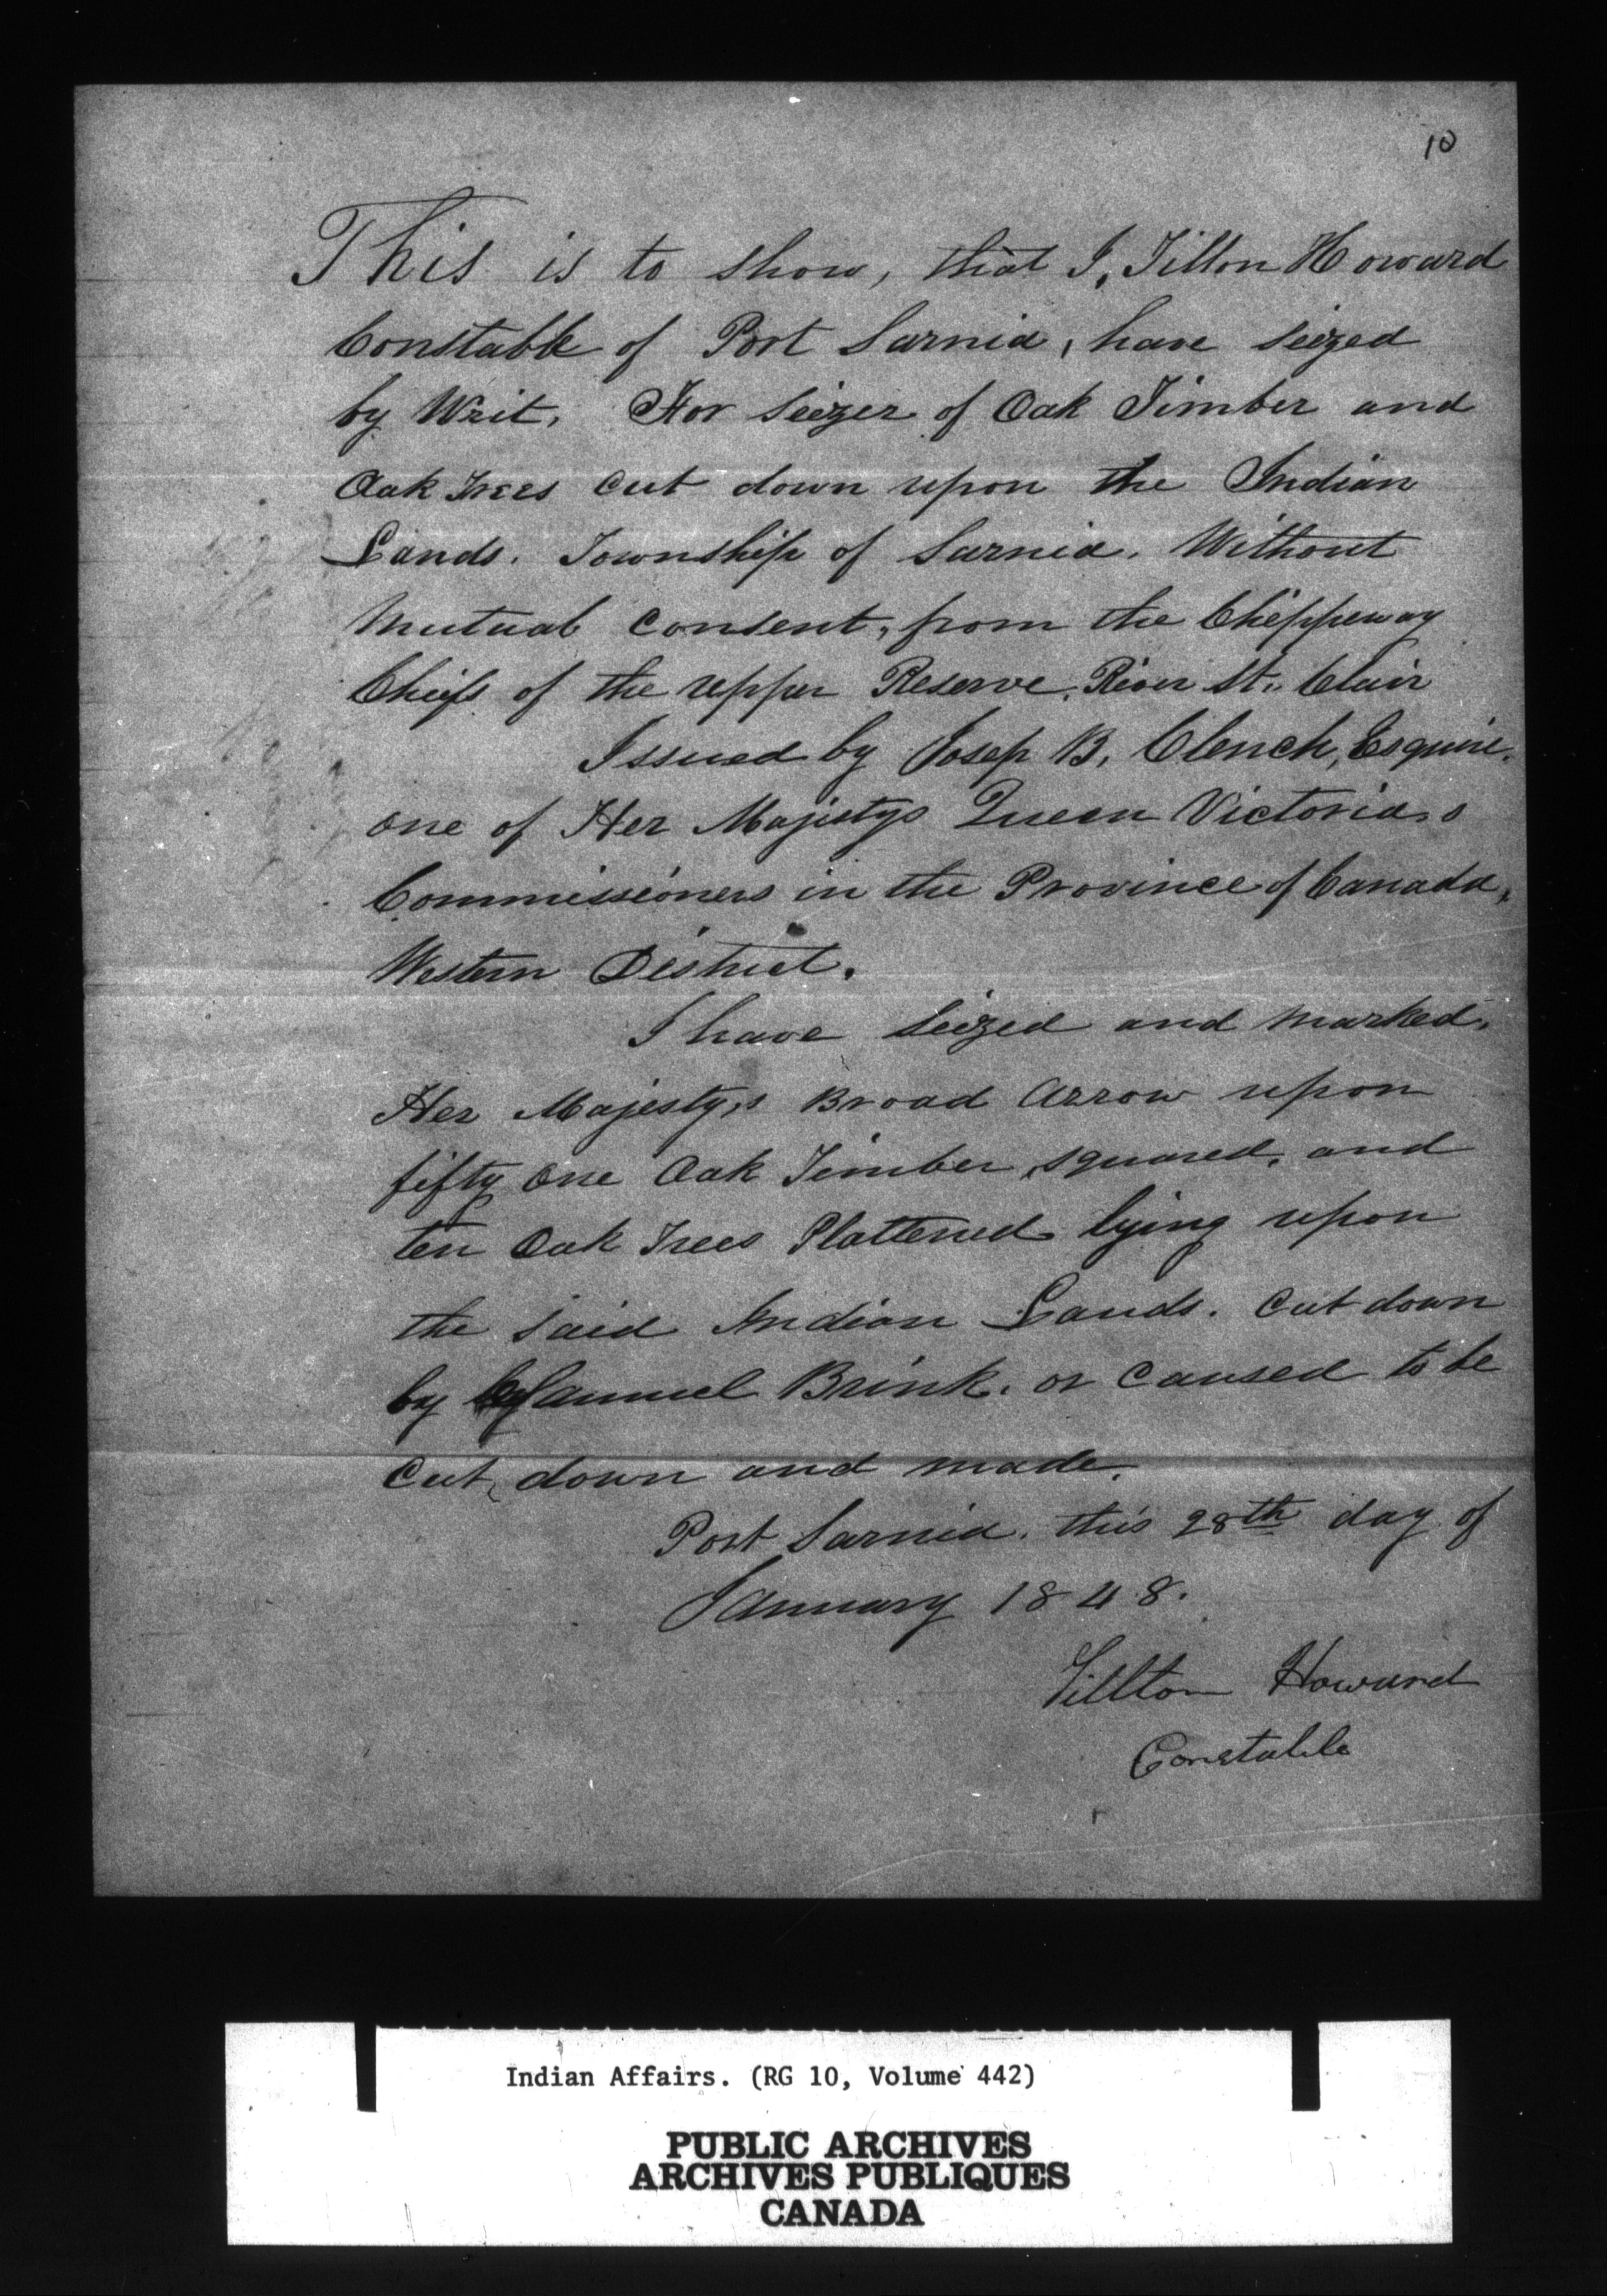 10
This is to show, that I, Tillon Howard
Constable of Port Sarnia, have seized
by Writ, For Seizer of Oak Timber and
Oak Trees cut down upon the Indian
Lands. Township of Sarnia. Without
Mutual Consent, from the Chippeway
Chiefs of the upper Reserve. River St. Clair
Issued by Josep B, Clench, Esquire.
one of Her Majestys Queen Victoria,s
Commissioners in the Province of Canada,
Western District.
I have Seized and marked,
Her Majesty,s Broad Arrow upon
fifty one Oak Timber, squared, and
ten Oak Trees Flattened lying upon
the said Indian Lands. Cut down
by Samuel Brink. or Caused to be
Cut, down and made.
Port Sarnia. this 28th day of
January 1848.
Tillton Howard
Constable
Indian Affairs. (RG 10, Volume 442)
PUBLIC ARCHIVES
ARCHIVES PUBLIQUES
CANADA